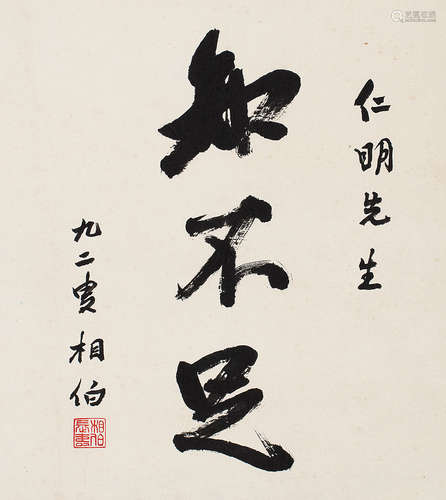 仁明先生
知不足
九二叟相伯
相伯